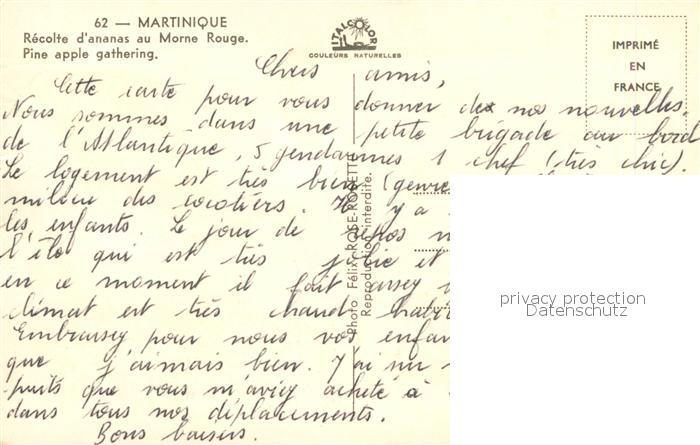 62 — MARTINIQUE
Récolte d'ananas au Morne Rouge.
Pine apple gathering.
ITALCOLOR
COULEURS NATURELLES
IMPRIMÉ
EN
FRANCE
Chers amis,
Cette carte pour vous donner de nos nouvelles.
Nous sommes dans une petite brigade au bord
de l'Atlantique, 5 gendarmes 1 chef (très chic).
Le logement est très bien (genre
milieu des cocotiers. Il y a
les enfants. Le jour de repos
l'île qui est très jolie et
en ce moment il fait assez
climat est très chaud
Embrassez pour nous vos
que j'aimais bien. J'ai mi
puits que vous m'aviez acheté à
dans tous nos déplacements.
Bons baisers.
Photo Félix ROSE-ROSETTE
Reproduction interdite.
privacy protection
Datenschutz